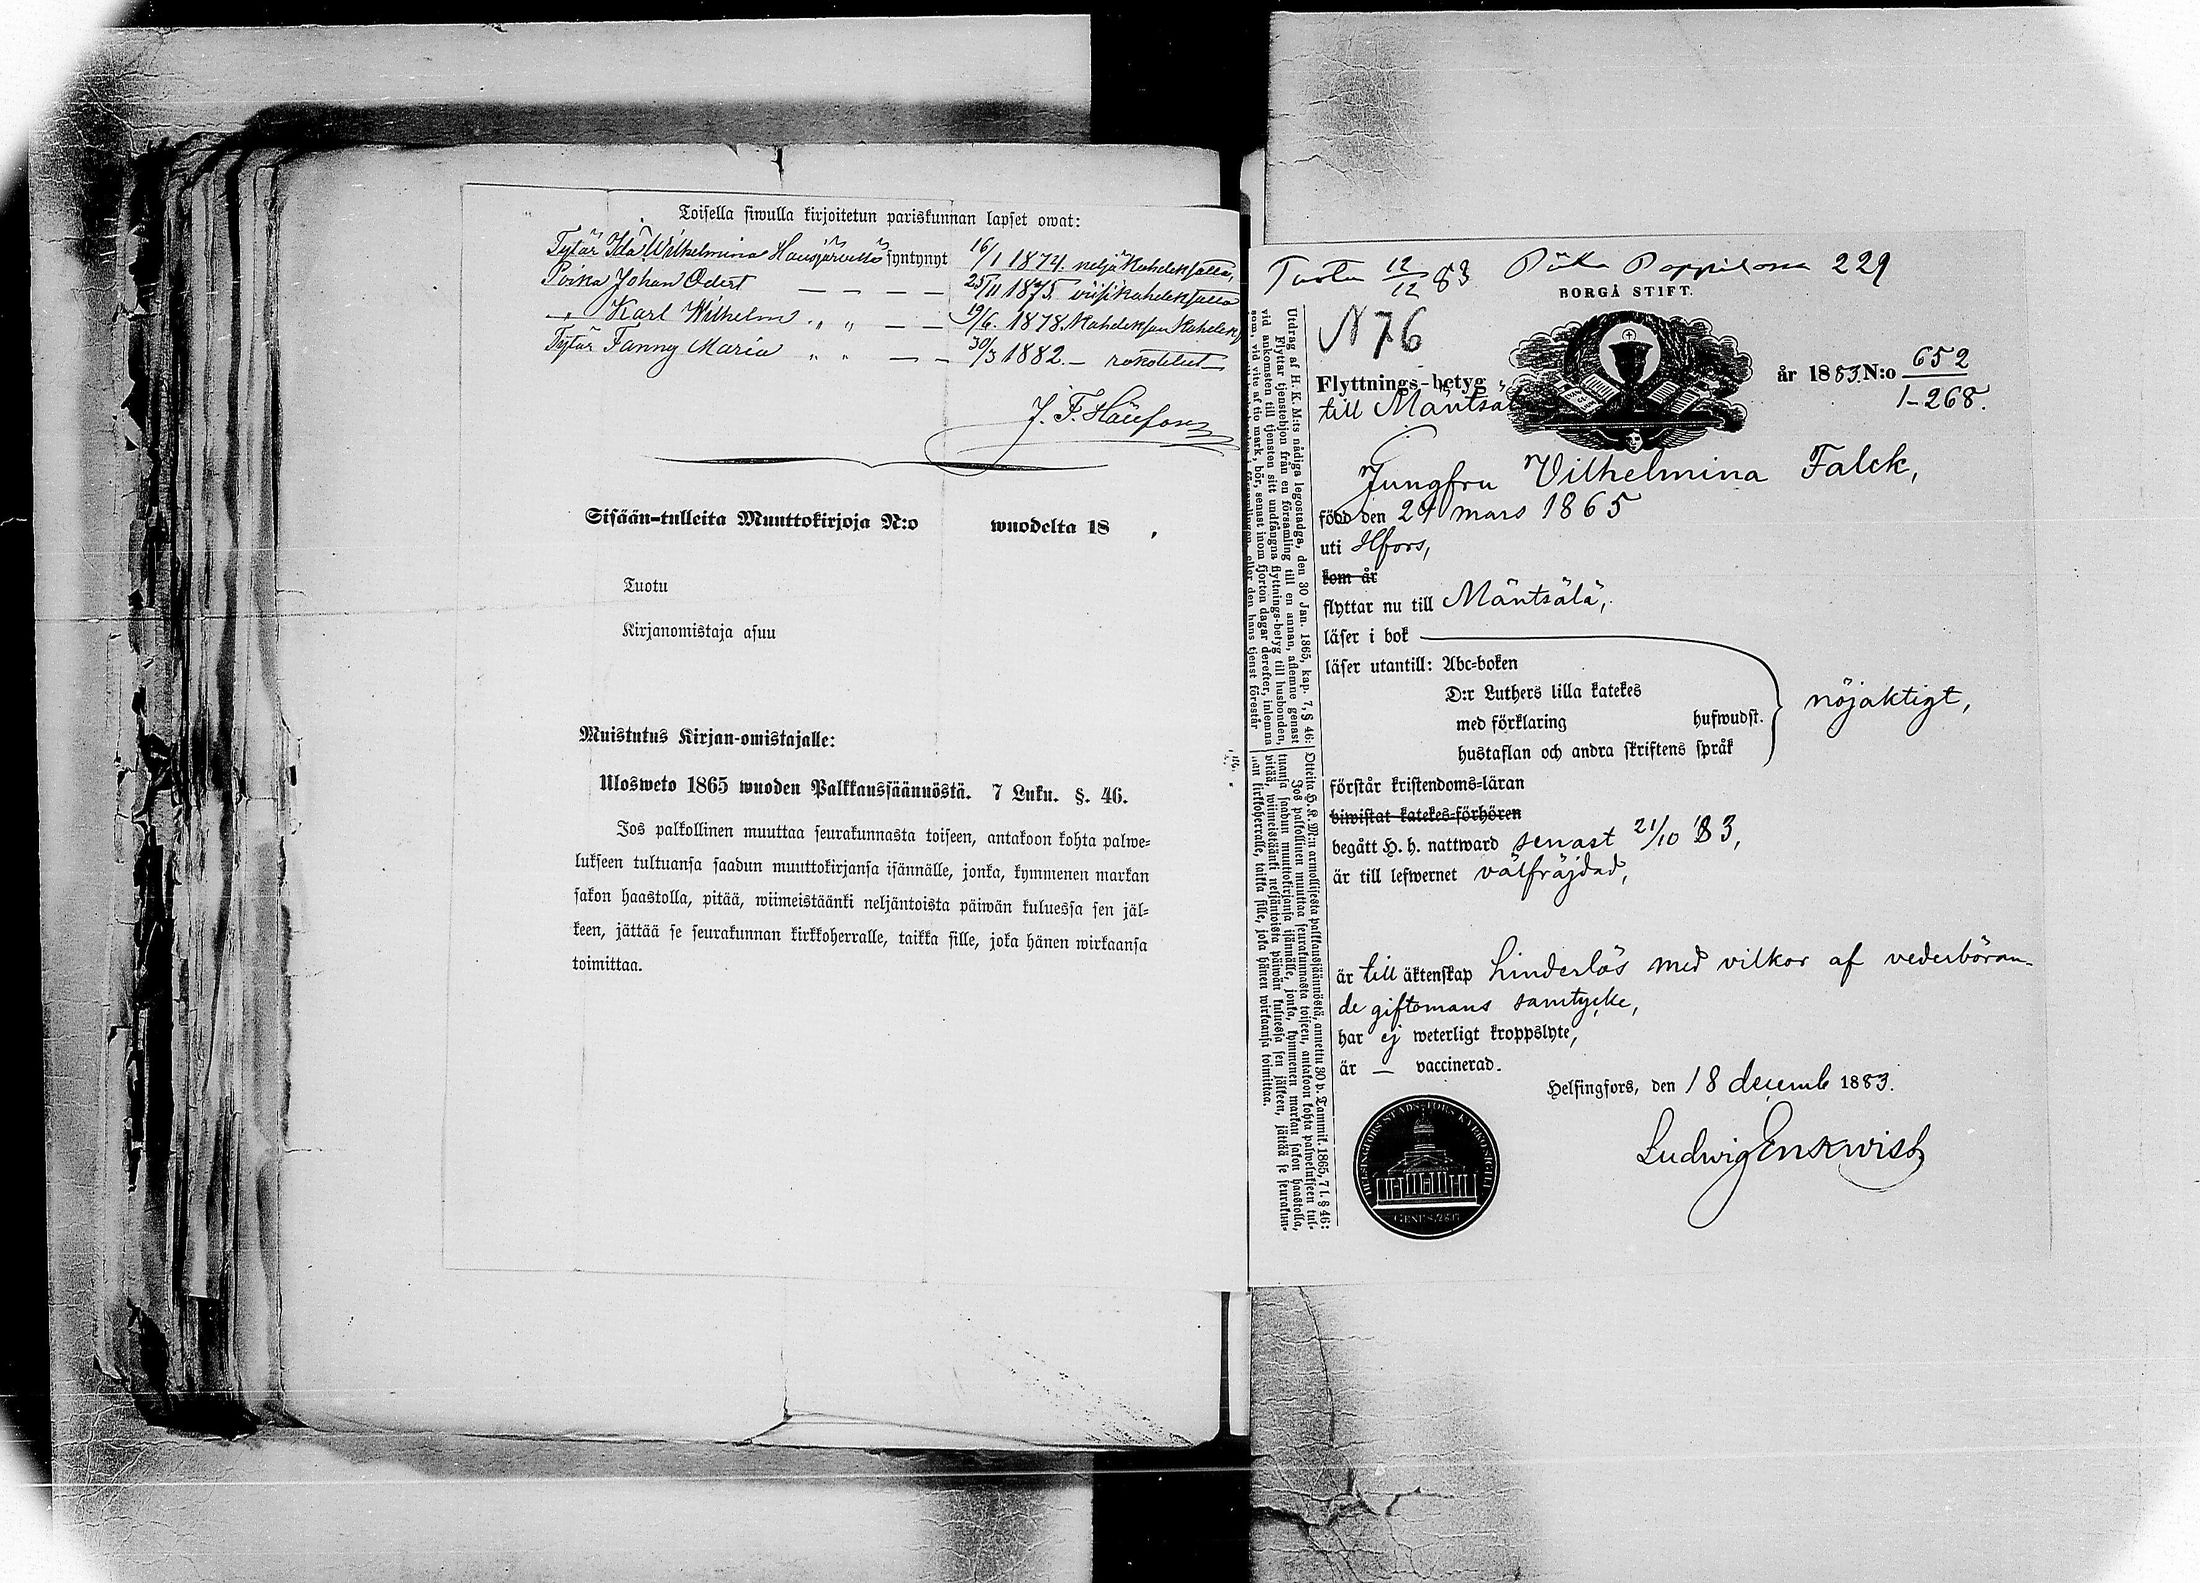 Toisella siwulla kirjoitetun pariskunnan lapset owat:
Tytär Ida Wilhelmina Hausjärvellä syntynyt 16/1 1874. neljäkahdeksatta,
Poika Johan Edert — — — — 25/11 1875. viisikahdeksatta
—„— Karl Wilhelm „ „ — — 19/6. 1878. Kahdeksankahdeks
Tytär Fanny Maria „ „ — — 30/3 1882. — rokotetut —
J. F.
Sisään-tulleita Muuttokirjoja N:o wuodelta 18 .
Tuotu
Kirjanomistaja asuu
Muistutus Kirjan-omistajalle:
Ulosweto 1865 wuoden Palkkaussäännöstä. 7 Luku. §. 46.
Jos palkollinen muuttaa seurakunnasta toiseen, antakoon kohta palwe-
lukseen tultuansa saadun muuttokirjansa isännälle, jonka, kymmenen markan
sakon haastolla, pitää, wiimeistäänki neljäntoista päiwän kuluessa sen jäl-
keen, jättää se seurakunnan kirkkoherralle, taikka sille, joka hänen wirkaansa
toimittaa.
Tuotu 12/12 83 Pappilassa 229
BORGÅ STIFT.
N 76
Flyttnings-betyg år 1883. N:o 652
till Mäntsä 1-268.
Jungfru Vilhelmina Falck,
född den 29 mars 1865
uti Hfors,
kom år
flyttar nu till Mäntsälä,
läser i bok
läser utantill: Abc-boken
D:r Luthers lilla katekes
med förklaring hufwudst. nöjaktigt,
hustaflan och andra skriftens språk
förstår kristendoms-läran
biwistat katekes-förhören
begått H. h. nattward senast 21/10 83,
är till lefwernet välfräjdad,
är till äktenskap hinderlös med vilkor af vederböran-
de giftomans samtycke,
har ej weterligt kroppslyte,
är — vaccinerad.
Helsingfors, den 18 decemb 1883.
Ludwig Enkwist
Utdrag af H. K. M:ts nådiga legostadga, den 30 Jan. 1865, kap. 7, § 46:
Flyttar tjenstehjon från en församling till en annan, aflemne genast
vid ankomsten till tjensten sitt undfångna flyttnings-betyg till husbonden,
som, vid vite af tio mark, bör, senast inom fjorton dagar derefter, inlemna
Otteita H. K. M:n armollisesta palkkaussäännöstä, annettu 30 p. Tammik. 1865, 7 l. § 46:
Jos palkollinen muuttaa seurakunnasta toiseen, antakoon kohta palwelukseen tul-
tuansa saadun muuttokirjansa isännälle, jonka, kymmenen markan sakon haastolla,
pitää, wiimeistäänki neljäntoista päiwän kuluessa sen jälkeen, jättää se seurakun-
nan kirkkoherralle, taikka sille, joka hänen wirkaansa toimittaa.